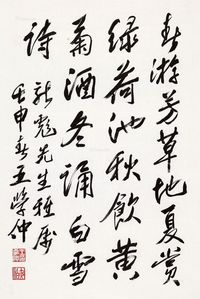 春游芳草地夏赏
绿荷池秋飲黄
菊酒冬诵白雪
诗
龙彪先生雅属
壬申春王学仲